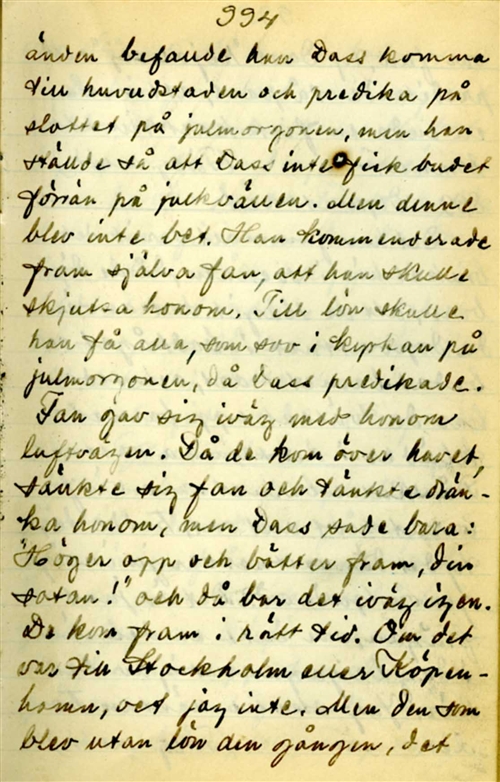 994
änden befallde han Dass komma
till huvudstaden och predika på
slottet på julmorgonen, men han
ställde så att Dass inte fick budet
förrän på julkvällen. Men denne
blev inte bet. Han kommenderade
fram själva fan, att han skulle
skjutsa honom. Till lön skulle
han få alla, som sov i kyrkan på
julmorgonen, då Dass predikade.
Fan gav sig iväg med honom
luftvägen. Då de kom över havet,
sänkte sig fan och tänkte drän-
ka honom, men Dass sade bara:
"Höger opp och bätter fram, din
satan!" och då bar det iväg igen.
De kom fram i rätt tid. Om det
var till Stockholm eller Köpen-
hamn, vet jag inte. Men den som
blev utan lön den gången, det